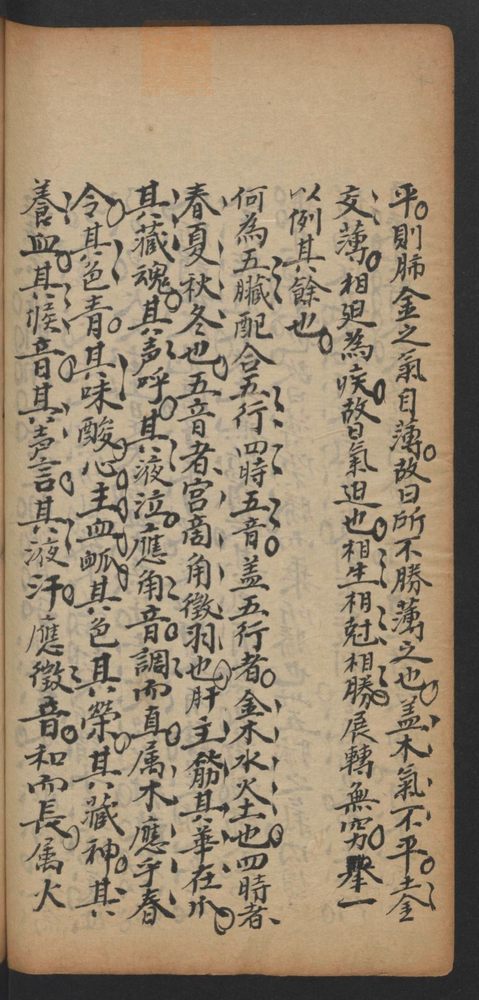 平則肺金之氣自薄故曰所不勝薄之也盖木氣不平土金
交薄相廹為疾故曰氣迫也相生相尅相勝展轉無窮擧一
以例其餘也
何為五臟配合五行四時五音盖五行者金木水火土也四時者
春夏秋冬也五音者宮商角徵羽也肝主筋其華在爪
其藏魂其声呼其液泣應角音調而直属木應乎春
令其色青其味酸心主血脈其色其榮其藏神其
養血其候音其声言其液汗應徵音和而長属火